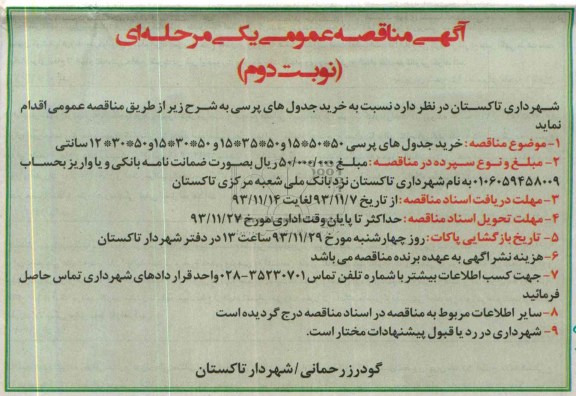 آگهی مناقصه عمومی یک مرحله‌ای
(نوبت دوم)
شهرداری تاکستان در نظر دارد نسبت به خرید جدول های پرسی به شرح زیر از طریق مناقصه عمومی اقدام
نماید
۱- موضوع مناقصه: خرید جدول های پرسی ۵۰*۵۰*۱۵ و ۵۰*۳۵*۱۵ و ۵۰*۳۰*۱۵ و ۵۰*۳۰*۱۲ سانتی
۲- مبلغ و نوع سپرده در مناقصه: مبلغ ۵۰/۰۰۰/۰۰۰ ریال بصورت ضمانت نامه بانکی و یا واریز بحساب
۰۱۰۶۰۵۹۴۵۸۰۰۹ به نام شهرداری تاکستان نزد بانک ملی شعبه مرکزی تاکستان
۳- مهلت دریافت اسناد مناقصه: از تاریخ ۹۳/۱۱/۷ لغایت ۹۳/۱۱/۱۴
۴- مهلت تحویل اسناد مناقصه: حداکثر تا پایان وقت اداری مورخ ۹۳/۱۱/۲۷
۵- تاریخ بازگشایی پاکات: روز چهارشنبه مورخ ۹۳/۱۱/۲۹ ساعت ۱۳ در دفتر شهردار تاکستان
۶- هزینه نشر آگهی به عهده برنده مناقصه می باشد
۷- جهت کسب اطلاعات بیشتر با شماره تلفن تماس ۳۵۲۳۰۷۰۱-۰۲۸ واحد قرار دادهای شهرداری تماس حاصل
فرمائید
۸- سایر اطلاعات مربوط به مناقصه در اسناد مناقصه درج گردیده است
۹- شهرداری در رد یا قبول پیشنهادات مختار است.
گودرز رحمانی/ شهردار تاکستان